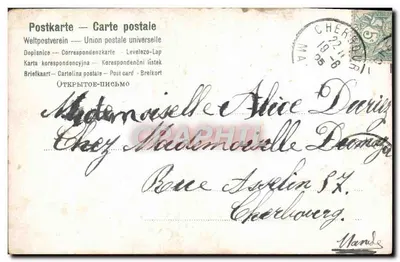 Postkarte – Carte postale
Weltpostverein — Union postale universelle
Dopisnice — Correspondenzkarte — Levelezo-Lap
Karta korespondencyjna — Korespondenční lístek
Briefkaart — Cartolina postale — Post card — Brefkort
ОТКРЫТОЕ-ПИСЬМО
CHERBOURG
19 - 8
5
Mademoiselle Alice
Chez Mademoiselle
Rue Asselin 57.
Cherbourg.
Manche